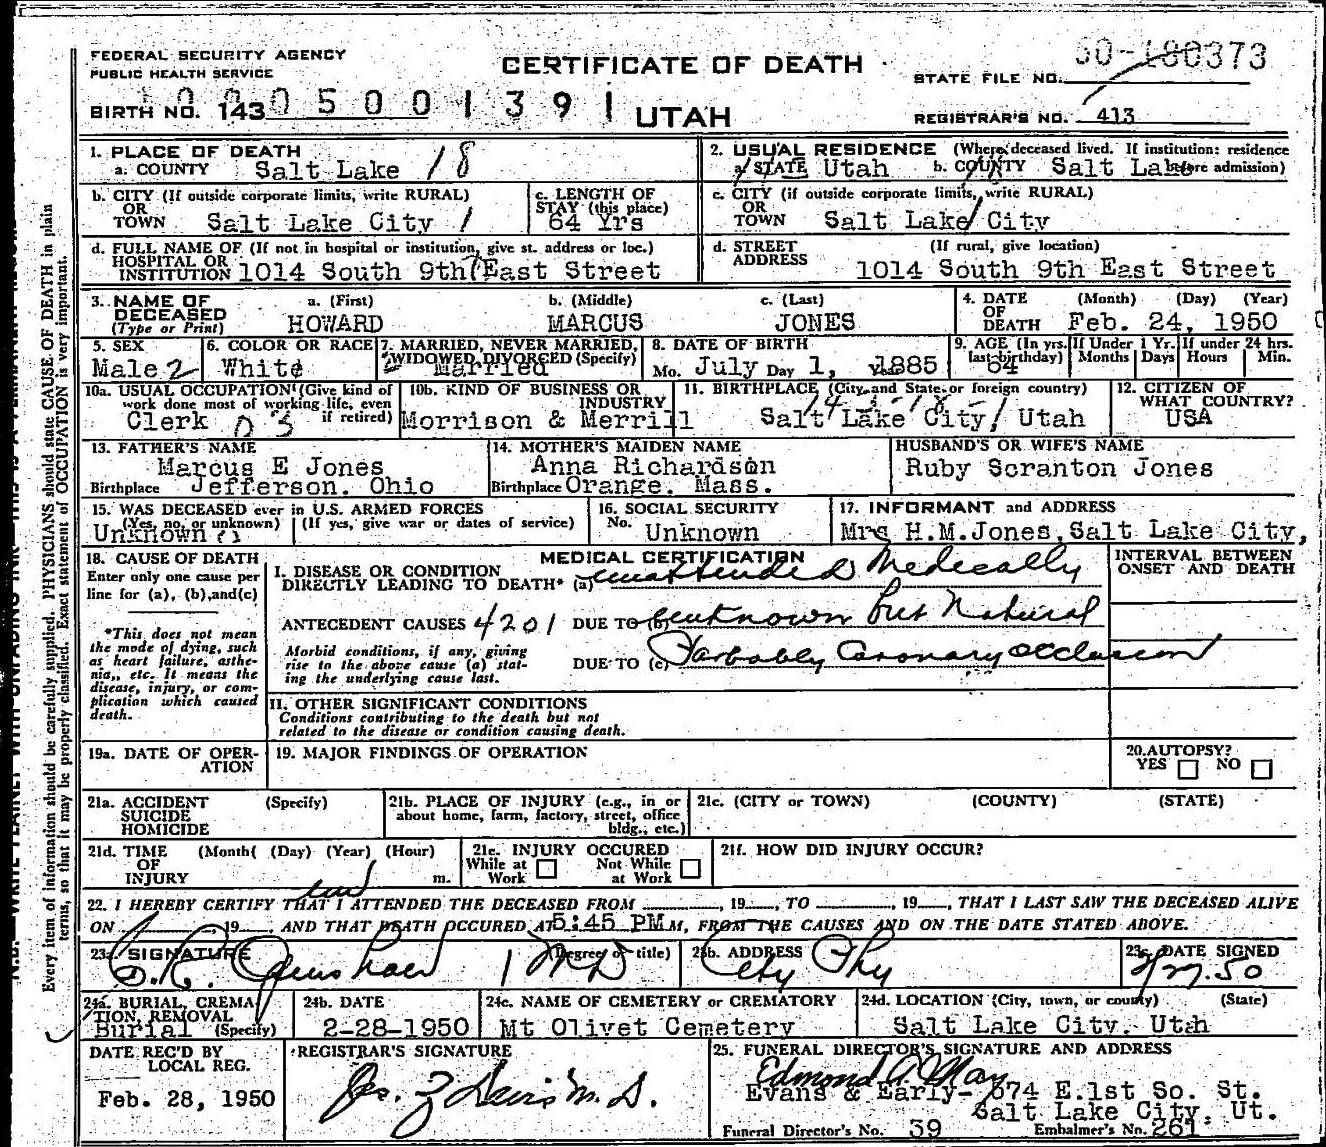 FEDERAL SECURITY AGENCY
PUBLIC HEALTH SERVICE
CERTIFICATE OF DEATH
STATE FILE NO. 50-180373
BIRTH NO. 143 0500 1391
UTAH
REGISTRAR'S NO. 413
1. PLACE OF DEATH
a. COUNTY Salt Lake 18
2. USUAL RESIDENCE (Where deceased lived. If institution: residence before admission)
a. STATE Utah b. COUNTY Salt Lake
b. CITY (If outside corporate limits, write RURAL) OR TOWN Salt Lake City 1
c. LENGTH OF STAY (this place) 64 Yrs
c. CITY (if outside corporate limits, write RURAL) OR TOWN Salt Lake City
d. FULL NAME OF (If not in hospital or institution, give st. address or loc.)
HOSPITAL OR INSTITUTION 1014 South 9th East Street
d. STREET ADDRESS (If rural, give location)
1014 South 9th East Street
3. NAME OF DECEASED (Type or Print)
a. (First) b. (Middle) c. (Last)
HOWARD MARCUS JONES
4. DATE OF DEATH (Month) (Day) (Year)
Feb. 24, 1950
5. SEX
Male 2
6. COLOR OR RACE
White
7. MARRIED, NEVER MARRIED, WIDOWED DIVORCED (Specify)
Married
8. DATE OF BIRTH
Mo. July Day 1, 1885
9. AGE (In yrs. last birthday) 64
If Under 1 Yr. Months Days
If under 24 hrs. Hours Min.
10a. USUAL OCCUPATION (Give kind of work done most of working life, even if retired)
Clerk
10b. KIND OF BUSINESS OR INDUSTRY
Morrison & Merrill
11. BIRTHPLACE (City and State or foreign country)
Salt Lake City, Utah
12. CITIZEN OF WHAT COUNTRY?
USA
13. FATHER'S NAME
Marcus E Jones
Birthplace Jefferson. Ohio
14. MOTHER'S MAIDEN NAME
Anna Richardson
Birthplace Orange. Mass.
HUSBAND'S OR WIFE'S NAME
Ruby Scranton Jones
15. WAS DECEASED ever in U.S. ARMED FORCES
(Yes, no, or unknown) (If yes, give war or dates of service)
Unknown
16. SOCIAL SECURITY
No. Unknown
17. INFORMANT and ADDRESS
Mrs H.M.Jones,Salt Lake City,
18. CAUSE OF DEATH
Enter only one cause per line for (a), (b),and(c)
*This does not mean the mode of dying, such as heart failure, asthenia,, etc. It means the disease, injury, or complication which caused death.
MEDICAL CERTIFICATION
I. DISEASE OR CONDITION DIRECTLY LEADING TO DEATH* (a) unattended Medically
ANTECEDENT CAUSES 4201 DUE TO (b) unknown but Natural
Morbid conditions, if any, giving rise to the above cause (a) stating the underlying cause last.
DUE TO (c) Parbably Coronary occlusion
INTERVAL BETWEEN ONSET AND DEATH
II. OTHER SIGNIFICANT CONDITIONS
Conditions contributing to the death but not related to the disease or condition causing death.
19a. DATE OF OPERATION
19. MAJOR FINDINGS OF OPERATION
20. AUTOPSY?
YES NO
21a. ACCIDENT SUICIDE HOMICIDE (Specify)
21b. PLACE OF INJURY (e.g., in or about home, farm, factory, street, office bldg., etc.)
21c. (CITY or TOWN) (COUNTY) (STATE)
21d. TIME OF INJURY (Month( (Day) (Year) (Hour) m.
21e. INJURY OCCURED
While at Work Not While at Work
21f. HOW DID INJURY OCCUR?
22. I HEREBY CERTIFY THAT I ATTENDED THE DECEASED FROM , 19 , TO , 19 , THAT I LAST SAW THE DECEASED ALIVE
ON 19 , AND THAT DEATH OCCURED AT 5:45 PM M, FROM THE CAUSES AND ON THE DATE STATED ABOVE.
23a. SIGNATURE (Degree or title) MD
23b. ADDRESS
City Phy
23c. DATE SIGNED
2/27.50
24a. BURIAL, CREMATION, REMOVAL (Specify)
Burial
24b. DATE
2-28-1950
24c. NAME OF CEMETERY or CREMATORY
Mt Olivet Cemetery
24d. LOCATION (City, town, or county) (State)
Salt Lake City. Utah
DATE REC'D BY LOCAL REG.
Feb. 28, 1950
REGISTRAR'S SIGNATURE
25. FUNERAL DIRECTOR'S SIGNATURE AND ADDRESS
Edmond A. May
Evans & Early- 574 E.1st So. St.
Salt Lake City, Ut.
Funeral Director's No. 39 Embalmer's No. 261
Every item of information should be carefully supplied. PHYSICIANS should state CAUSE OF DEATH in plain
terms, so that it may be properly classified. Exact statement of OCCUPATION is very important.